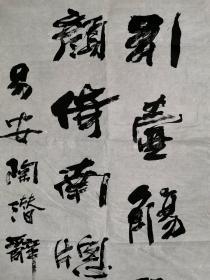 引壺觴
顏倚南窗
易安陶潛辭